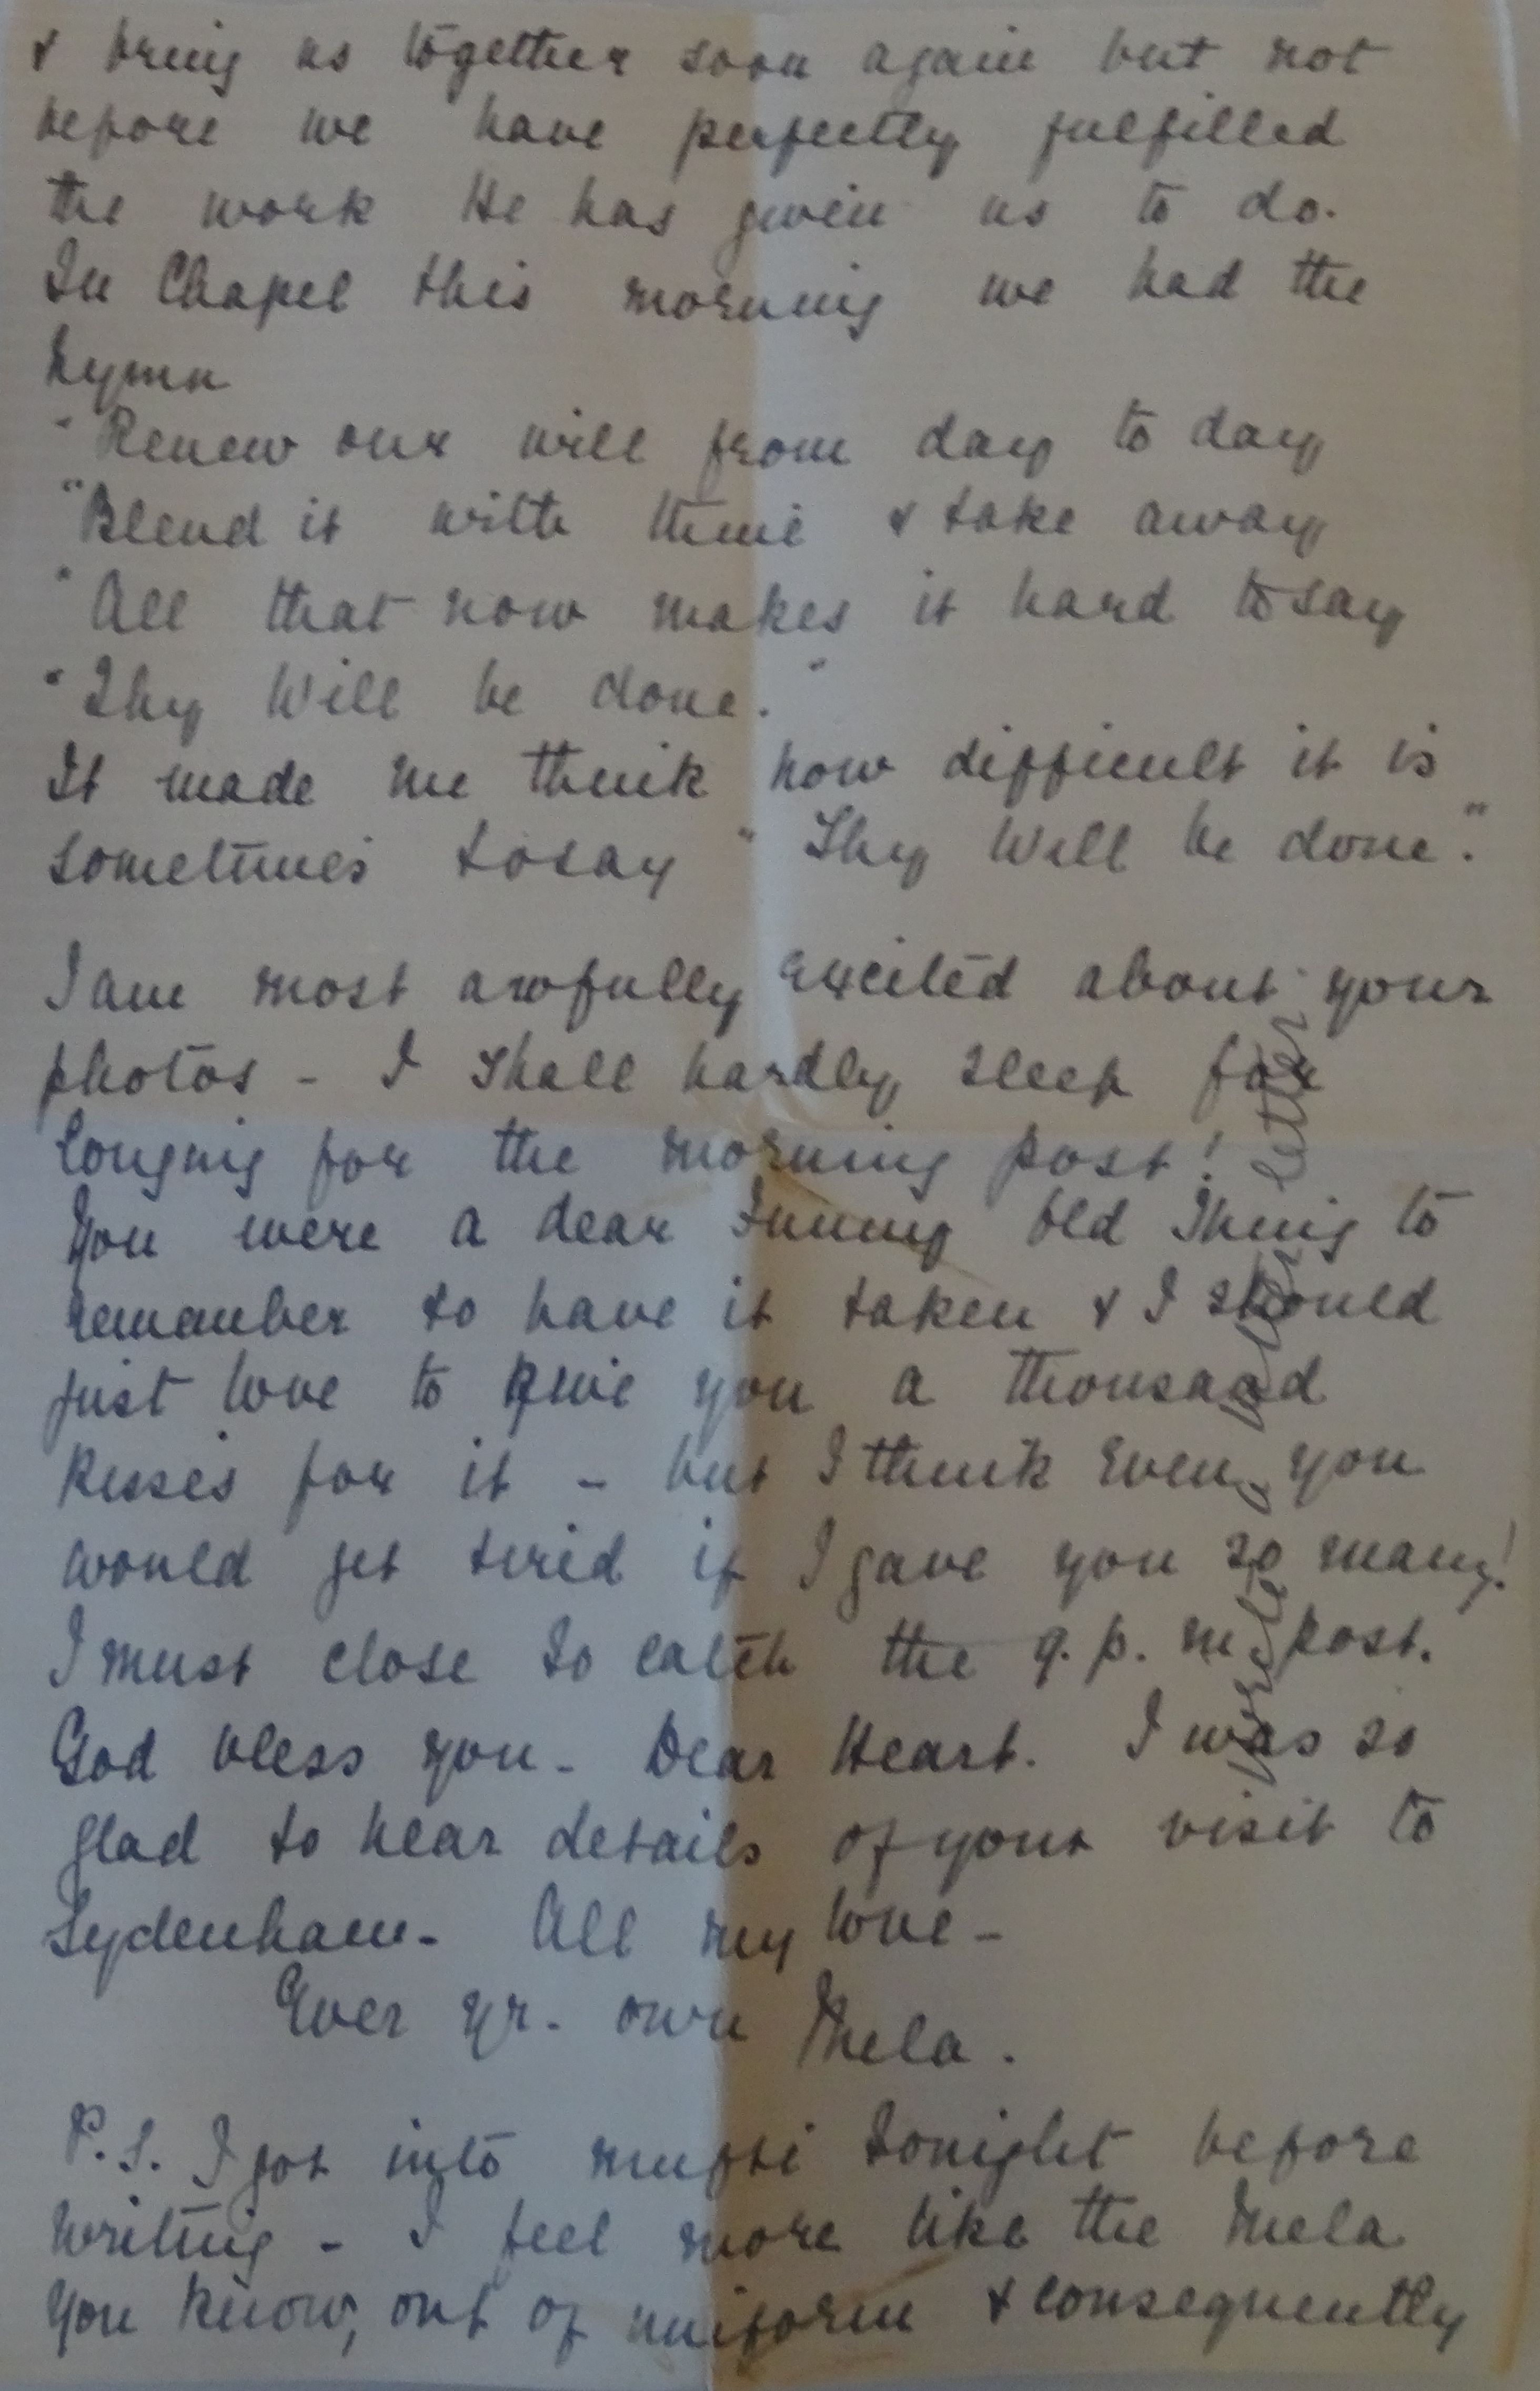 & bring us together soon again but not
before we have perfectly fulfilled
the work He has given us to do.
In Chapel this morning we had the
hymn
"Renew our will from day to day
"Blend it with thine & take away
"All that now makes it hard to say
"Thy Will be done."
It made me think how difficult it is
sometimes to say "Thy Will be done."
I am most awfully excited about your
photos - I shall hardly sleep for
longing for the morning post!
You were a dear Funny Old Thing to
remember to have it taken & I should
just love to give you a thousand
kisses for it - but I think even you
would get tired if I gave you so many!
I must close to catch the 9. p. m. post.
God bless you - Dear Heart. I was so
glad to hear details of your visit to
Sydenham - All my love -
Ever yr. own Mela.
P.S. I got into mufti tonight before
writing - I feel more like the Mela
you know, out of uniform & consequently
write a better letter